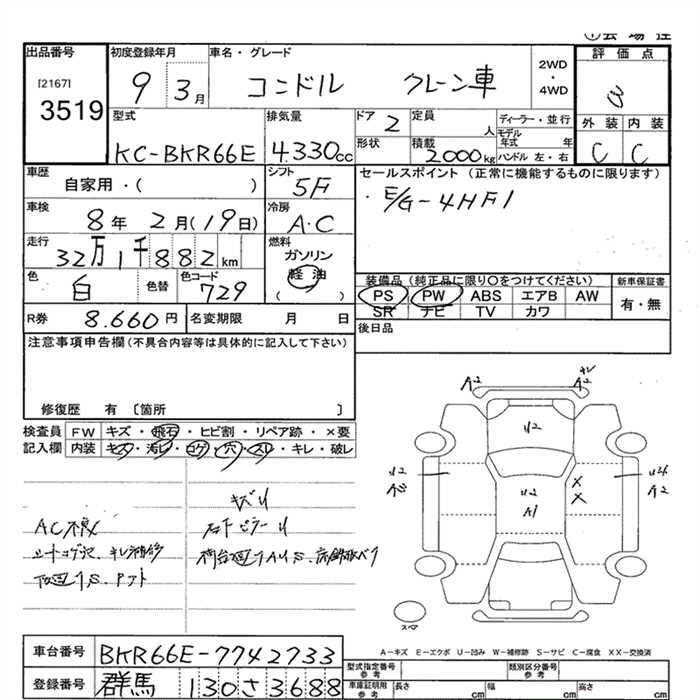 出品番号
[2167]
3519
初度登録年月
9 3月
車名・グレード
コンドル クレーン車
2WD
・
4WD
評価点
外装 内装
C C
型式
KC-BKR66E
排気量
4.330cc
ドア 2
形状
定員 人
積載 2000kg
ディーラー・並行
モデル
年式 年
ハンドル 左・右
車歴
自家用・( )
シフト
5F
セールスポイント (正常に機能するものに限ります)
・E/G-4HF1
車検
8年 2月(19日)
冷房
A・C
走行
32万1千882km
燃料
ガソリン
軽油
( )
色
白
色替
色コード
729
装備品 (純正品に限り○をつけてください)
PS PW ABS エアB AW
SR ナビ TV カワ
新車保証書
有・無
R券 8.660円
名変期限 月 日
後日品
注意事項申告欄(不具合内容等は具体的に記入して下さい)
修復歴 有 〔箇所 〕
検査員 FW キズ・飛石・ヒビ割・リペア跡・×要
記入欄 内装 キズ・汚レ・コゲ・穴・スレ・キレ・破レ
AC不良
A2 A2
U2
U2 U4
A2
U2
A1
X
X
スペア
A-キズ E-エクボ U-凹み W-補修跡 S-サビ C-腐食 XX-交換済
車台番号 BKR66E-7742733
登録番号 群馬 130さ3688
型式指定番号
参考
類別区分番号
参考
車庫証明用
参考
長さ cm 幅 cm 高さ cm